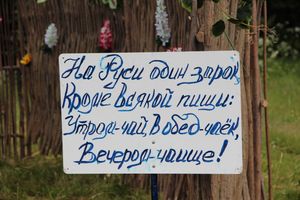 На Руси один зарок,
Кроме всякой пищи:
Утром-чай, В обед-чаёк,
Вечером-чаище!